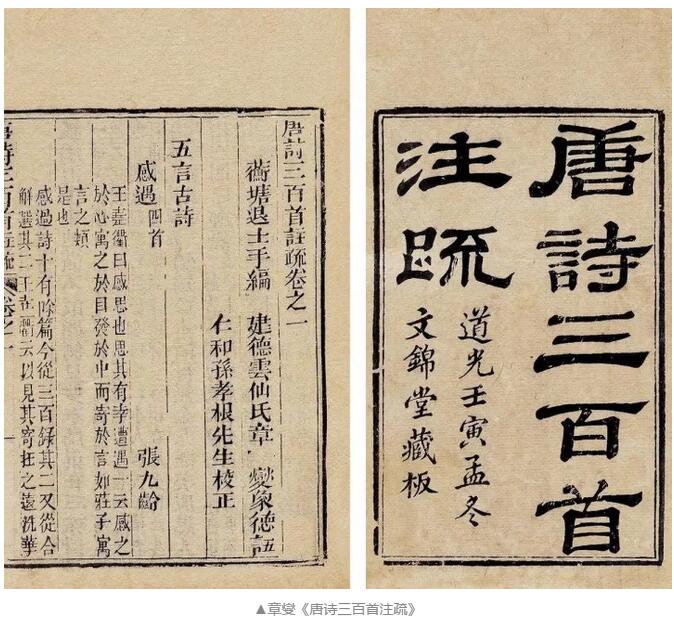 唐詩三百首
注疏
道光壬寅孟冬
文錦堂藏板
唐詩三百首註疏卷之一
蘅塘退士手編 建德雲仙氏章 燮象德
仁和孫孝根先生校正
五言古詩
感遇四首 張九齡
王堯衢曰感思也思其有幸遭遇一云感之
於心寓之於目發於中而寄於言如莊子寓
言之類
是也
感遇詩十有餘篇今從三百錄其二又從合
解選其二王在衢云以見其寄托之遠洗華
唐詩三百首註疏 卷之一
▲章燮《唐诗三百首注疏》